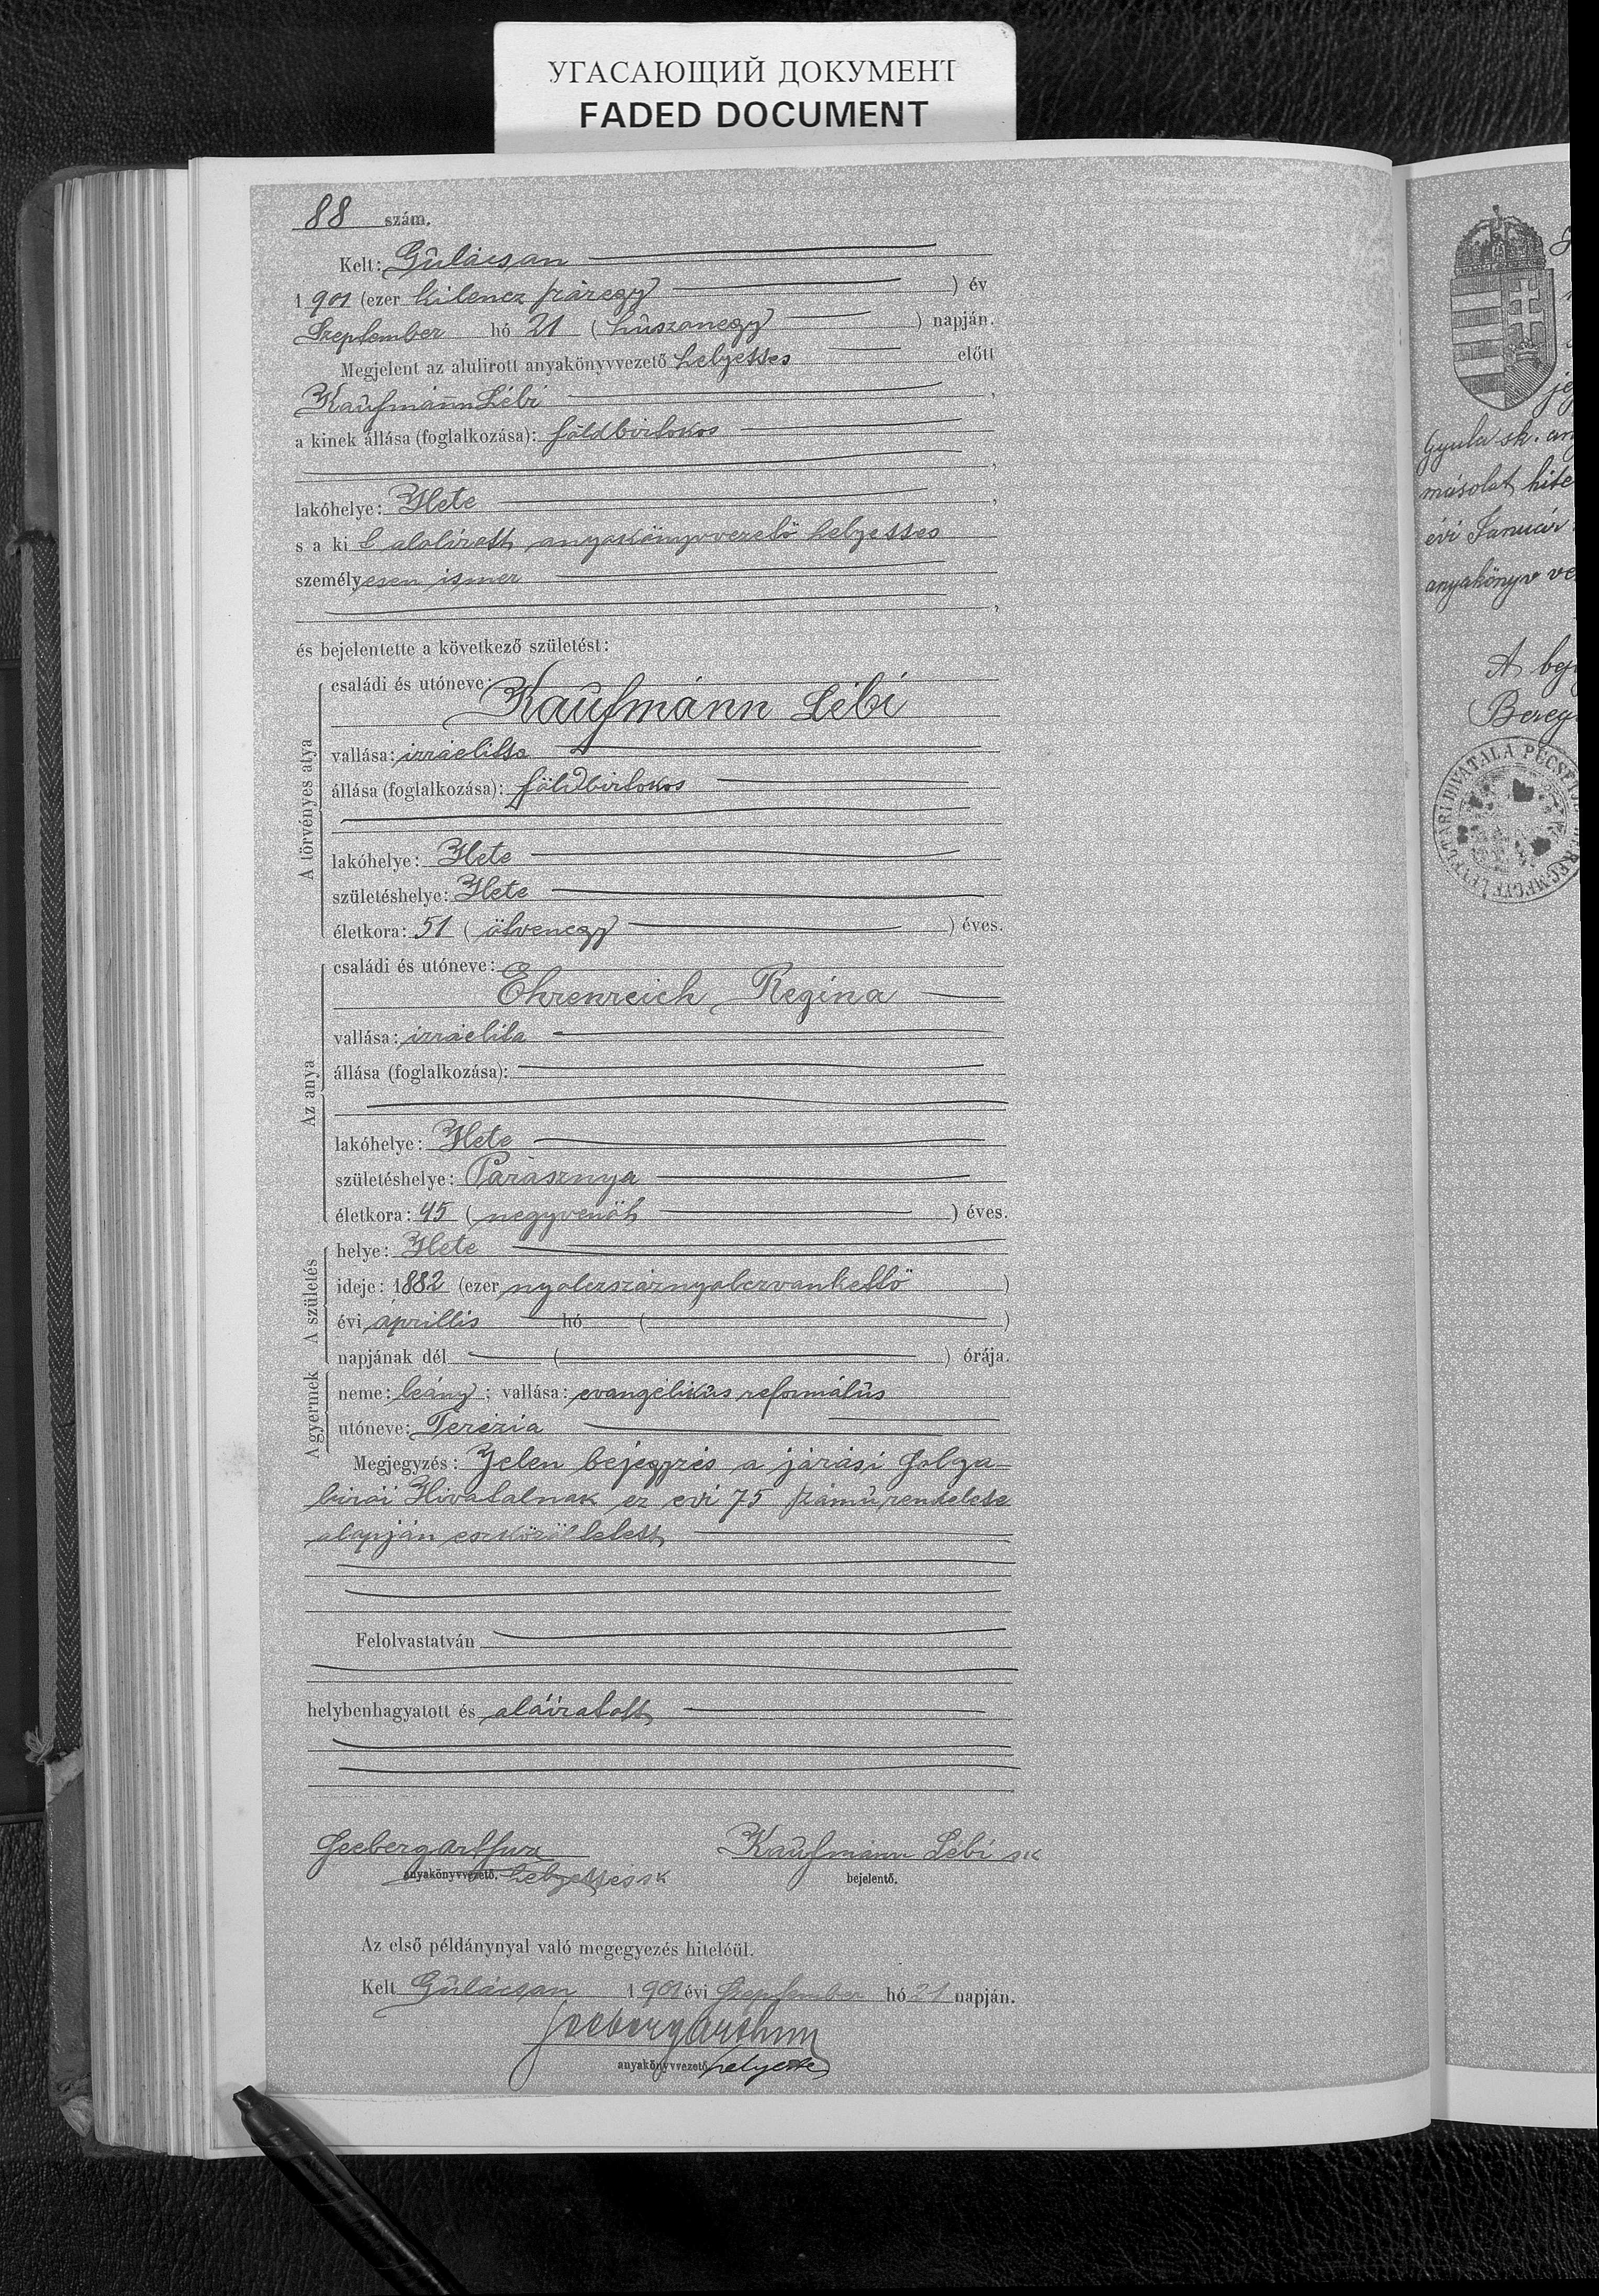 УГАСАЮЩИЙ ДОКУМЕНТ
FADED DOCUMENT
88 szám.
Kelt: Gulácsan
1901 (ezer kilencz százegy) év
Szeptember hó 21 (huszonegy) napján.
Megjelent az alulirott anyakönyvvezető helyettes előtt
Kaufmann Lébi,
a kinek állása (foglalkozása): földbirtokos
,
lakóhelye: Hete,
s a kit alólirott anyakönyvvezető helyettes
személyesen ismer
,
és bejelentette a következő születést:
A törvényes atya
családi és utóneve:
Kaufmánn Lébi
vallása: izraelitta
állása (foglalkozása): földbirtokos
lakóhelye: Hete
születéshelye: Hete
életkora: 51 (ötvenegy) éves.
Az anya
családi és utóneve:
Ehrenreich Regina
vallása: izraelita
állása (foglalkozása):
lakóhelye: Hete
születéshelye: Parasznya
életkora: 45 (negyvenöt) éves.
A születés
helye: Hete
ideje: 1882 (ezer nyolczszáznyolczvankettő)
évi áprillis hó ( )
napjának dél ( ) órája.
A gyermek
neme: leány; vallása: evangelikus református
utóneve: Terézia
Megjegyzés: Jelen bejegyzés a járási szolga-
birói Hivatalnak ez evi 75 számú rendelete
alapján eszközöltetett
Felolvastatván
helybenhagyatott és aláiratott
Seeberg Arthur Kaufmann Lébi sk
anyakönyvvezető. helyettes sk bejelentő.
Az első példánynyal való megegyezés hiteléül.
Kelt Gulácsan 1901 évi Szeptember hó 21 napján.
Seeberg Arthur
anyakönyvvezető helyettes
Gyula sk. any
másolat hite
évi Január
anyakönyv ve
A
Bereg